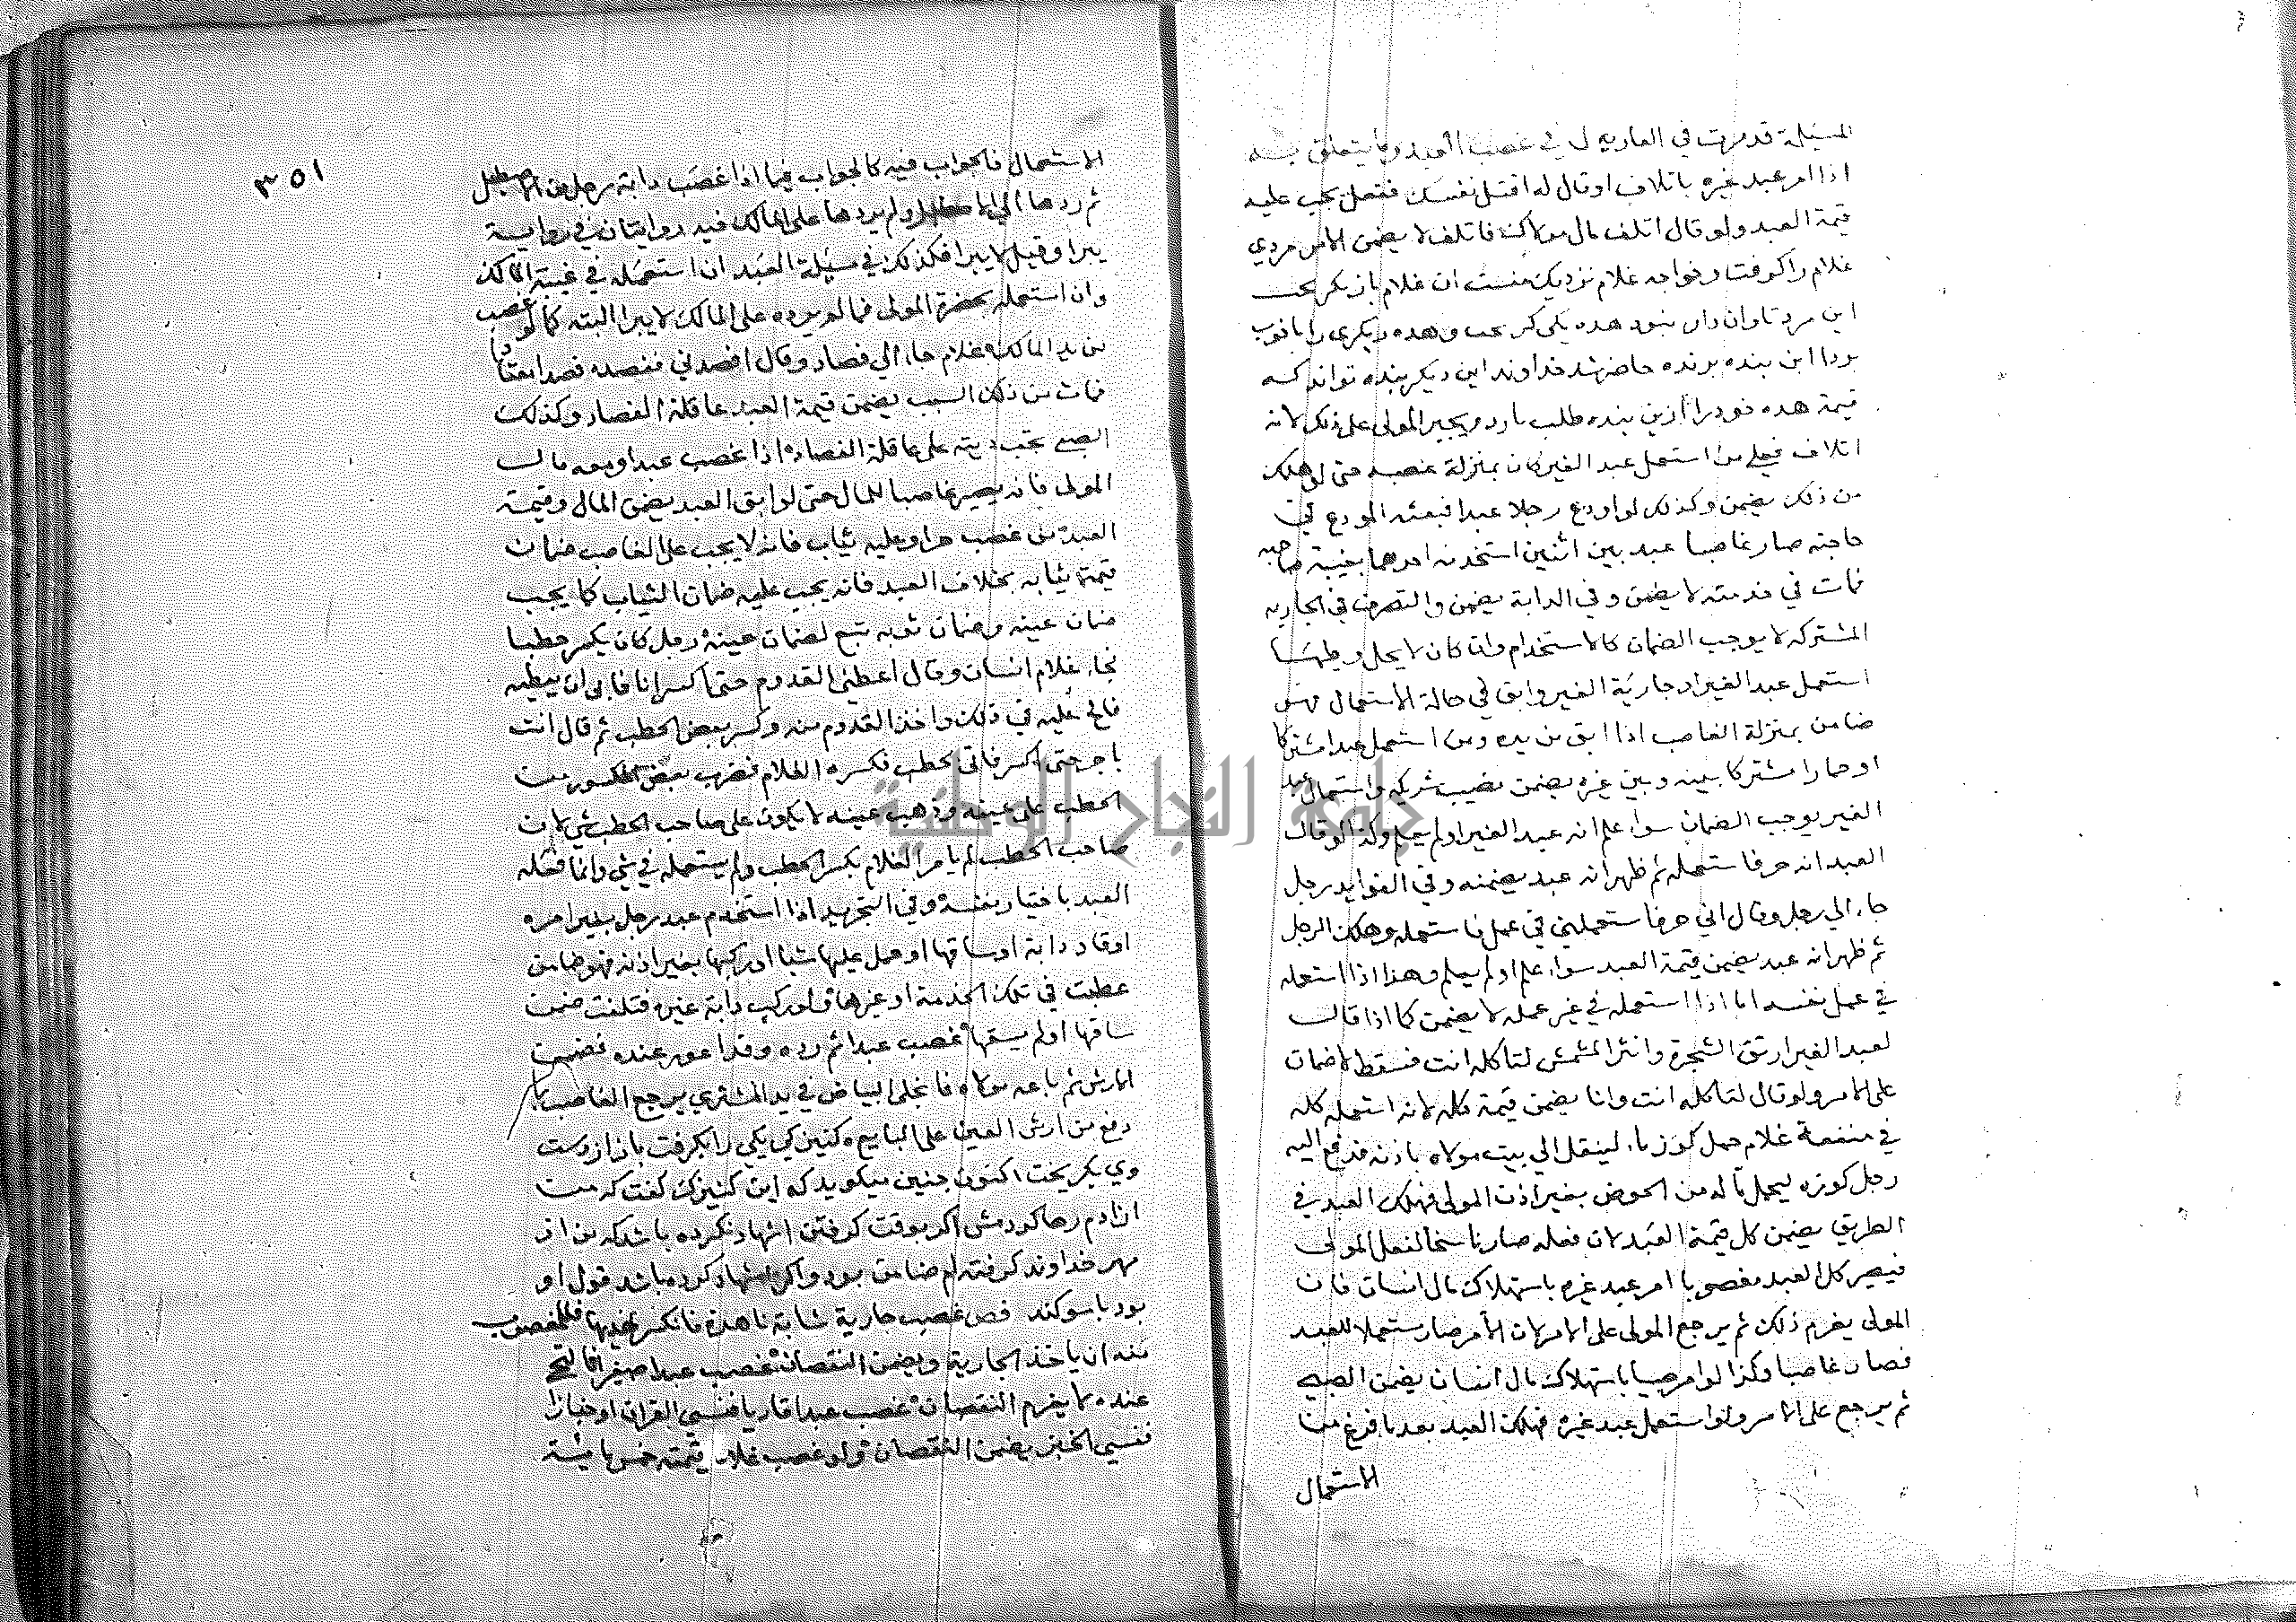 المسئلة قد مرت في العاربه ل في غصب العبد وما يتعلق بــه
اذا امر عبد غيره باتلاف او قال له اقتل نفسك ففعل يجب عليه
قيمة العبد ولو قال اتلف مال مولاك فاتلف لا يضمن الامر مردي
غلام را كرفت وخواجه غلام نزديك منست ان غلام باز بكريخت
اين مرد تاوان دار نبود هده يكي كريخت وهده ديكري را باخوب
برد ااين بنده برنده حاضر شد خداوند اين ديكر بنده تواند كه
قيمة هده خود را ازين بنده طلب دارد ويجبر المولى على ذلك لانه
اتلاف فعلي من استعمل عبد الغير كان بمنزلة غصبه حتى لو هلك
من ذلك يضمن وكذلك لو اودع رجلا عبدا فبعثه المودع في
حاجته صار غاصبا عبد بين اثنين استخدمه احدهما بغيبة صاحبه
فمات في خدمته لا يضمن وفي الدابة يضمن والتصرف في الجاريه
المشتركه لا يوجب الضمان كالاستخدام وان كان لا يحل وطيها
استعمل عبد الغير او جارية الغير وابق في حالة الاستعمال فهو
ضامن بمنزلة الغاصب اذا ابق من يده ومن استعمل عبدا مشتركا
او حمارا مشتركا بينه وبين غيره يضمن نصيب شريكه واستعمال عبد
الغير يوجب الضمان سواء علم انه عبد الغير او لم يعلم وكذا لو قال
العبد انه حر فاستعمله ثم ظهر انه عبد يضمنه وفي الفوايد رجل
جاء الي رجل وقال اني حر فاستعملني في عمل فاستعمله وهلك الرجل
ثم ظهر انه عبد يضمن قيمة العبد سواء علم او لم يعلم وهذا اذا استعمله
في عمل نفسه اما اذا استعمله في غير عمله لا يضمن كما اذا قال
لعبد الغير ارتق الشجرة وانثر المشمش لتاكله انت فسقط لا ضمان
على الامر ولو قال لتاكله انت وانا يضمن قيمة كله لانه استعمله كله
في منفعة غلام حمل كوز ماء لينقل الي بيت مولاه باذنه فدفع اليه
رجل كوزه ليحمل ماء له من الحوض بغير اذن المولى فهلك العبد في
الطريق يضمن كل قيمة العبد لان فعله صار ناسخا لفعل المولى
فيصير كل العبد مغصوبا امر عبد غيره باستهلاك مال انسان فان
المولى يغرم ذلك ثم يرجع المولى على الامر لان الامر صار مستعملا للعبد
فصار غاصبا وكذا لو امر صبيا باستهلاك مال انسان يضمن الصبي
ثم يرجع على الامر ولو استعمل عبد غيره فهلك العبد بعد ما فرغ من
الاستعمال
٣٥١
الاستعمال فالجواب فيه كالجواب فيما اذا غصب دابة رجل من الاصطبل
ثم ردها الي ولم يردها على المالك فيه روايتان في رواية
يبرا وقيل لا يبرا فكذلك في مسئلة العبد ان استعمله في غيبة المالك
وان استعمله بحضرة المولى فما لم يرده على المالك لا يبرا البته كما لو غصب
من يد المالك غلام جاء الي فصاد وقال افصدني ففصده فصدا معتادا
فمات من ذلك السبب يضمن قيمة العبد عاقلة الفصاد وكذلك
الصبي تجب ديته على عاقلة الفصاد اذا غصب عبدا ومعه مال
المولى فانه يصير غاصبا للمال حتى لو ابق العبد يضمن المال وقيمة
العبد من غصب حرا وعليه ثياب فانه لا يجب على الغاصب ضمان
قيمة ثيابه بخلاف العبد فانه يجب عليه ضمان الثياب كما يجب
ضمان عينه وضمان ثوبه تبع لضمان عينه رجل كان يكسر حطبا
فجاء غلام انسان وقال اعطني القدوم حتى اكسر انا فابى ان يعطيه
فالح عليه في ذلك واخذ القدوم منه وكسر بعض الحطب ثم قال انت
باخر حتى اكسر فاتى بحطب فكسره الغلام فضرب بعض المكسور من
الحطب على عينه وذهب عينه لا يكون على صاحب الحطب شي لان
صاحب الحطب لم يامر الغلام بكسر الحطب ولم يستعمله في شي وانما فعله
العبد باختيار نفسه وفي التجريد اذا استخدم عبد رجل بغير امره
او قاد دابة او ساقها او حمل عليها شيا او ركبها بغير اذنه فهو ضامن
عطبت في تلك الخدمة او غيرها ولو ركب دابة غيره فتلفت ضمن
ساقها او لم يسقها غصب عبدا ثم رده وقد اعور عنده فضمن
الارش ثم باعه مولاه فانجلى البياض في يد المشتري يرجع الغاصب بما
دفع من ارش العين على البايع كنيزكي يكي را بكرفت باز از دست
وي بكريخت اكنون جنين ميكويد كه اين كنيزك كفت كه من
ازادم رها كردمش اكر بوقت كرفتن اشهاد نكرده باشد كه من از
بهر خداوند كرفته ام ضامن بود واكر اشهاد كرده باشد قول او
بود باسوكند فص غصب جارية شابة ناهدة فانكسر ثديها فللمغصوب
منه ان ياخذ الجارية ويضمن النقصان غصب عبدا صغيرا فالتحى
عنده لا يغرم النقصان غصب عبدا قاريا فنسي القران او خبازا
فنسي الخبز يضمن النقصان ولو غصب غلاما قيمته خمس مائة
جامعة النجاح الوطنية